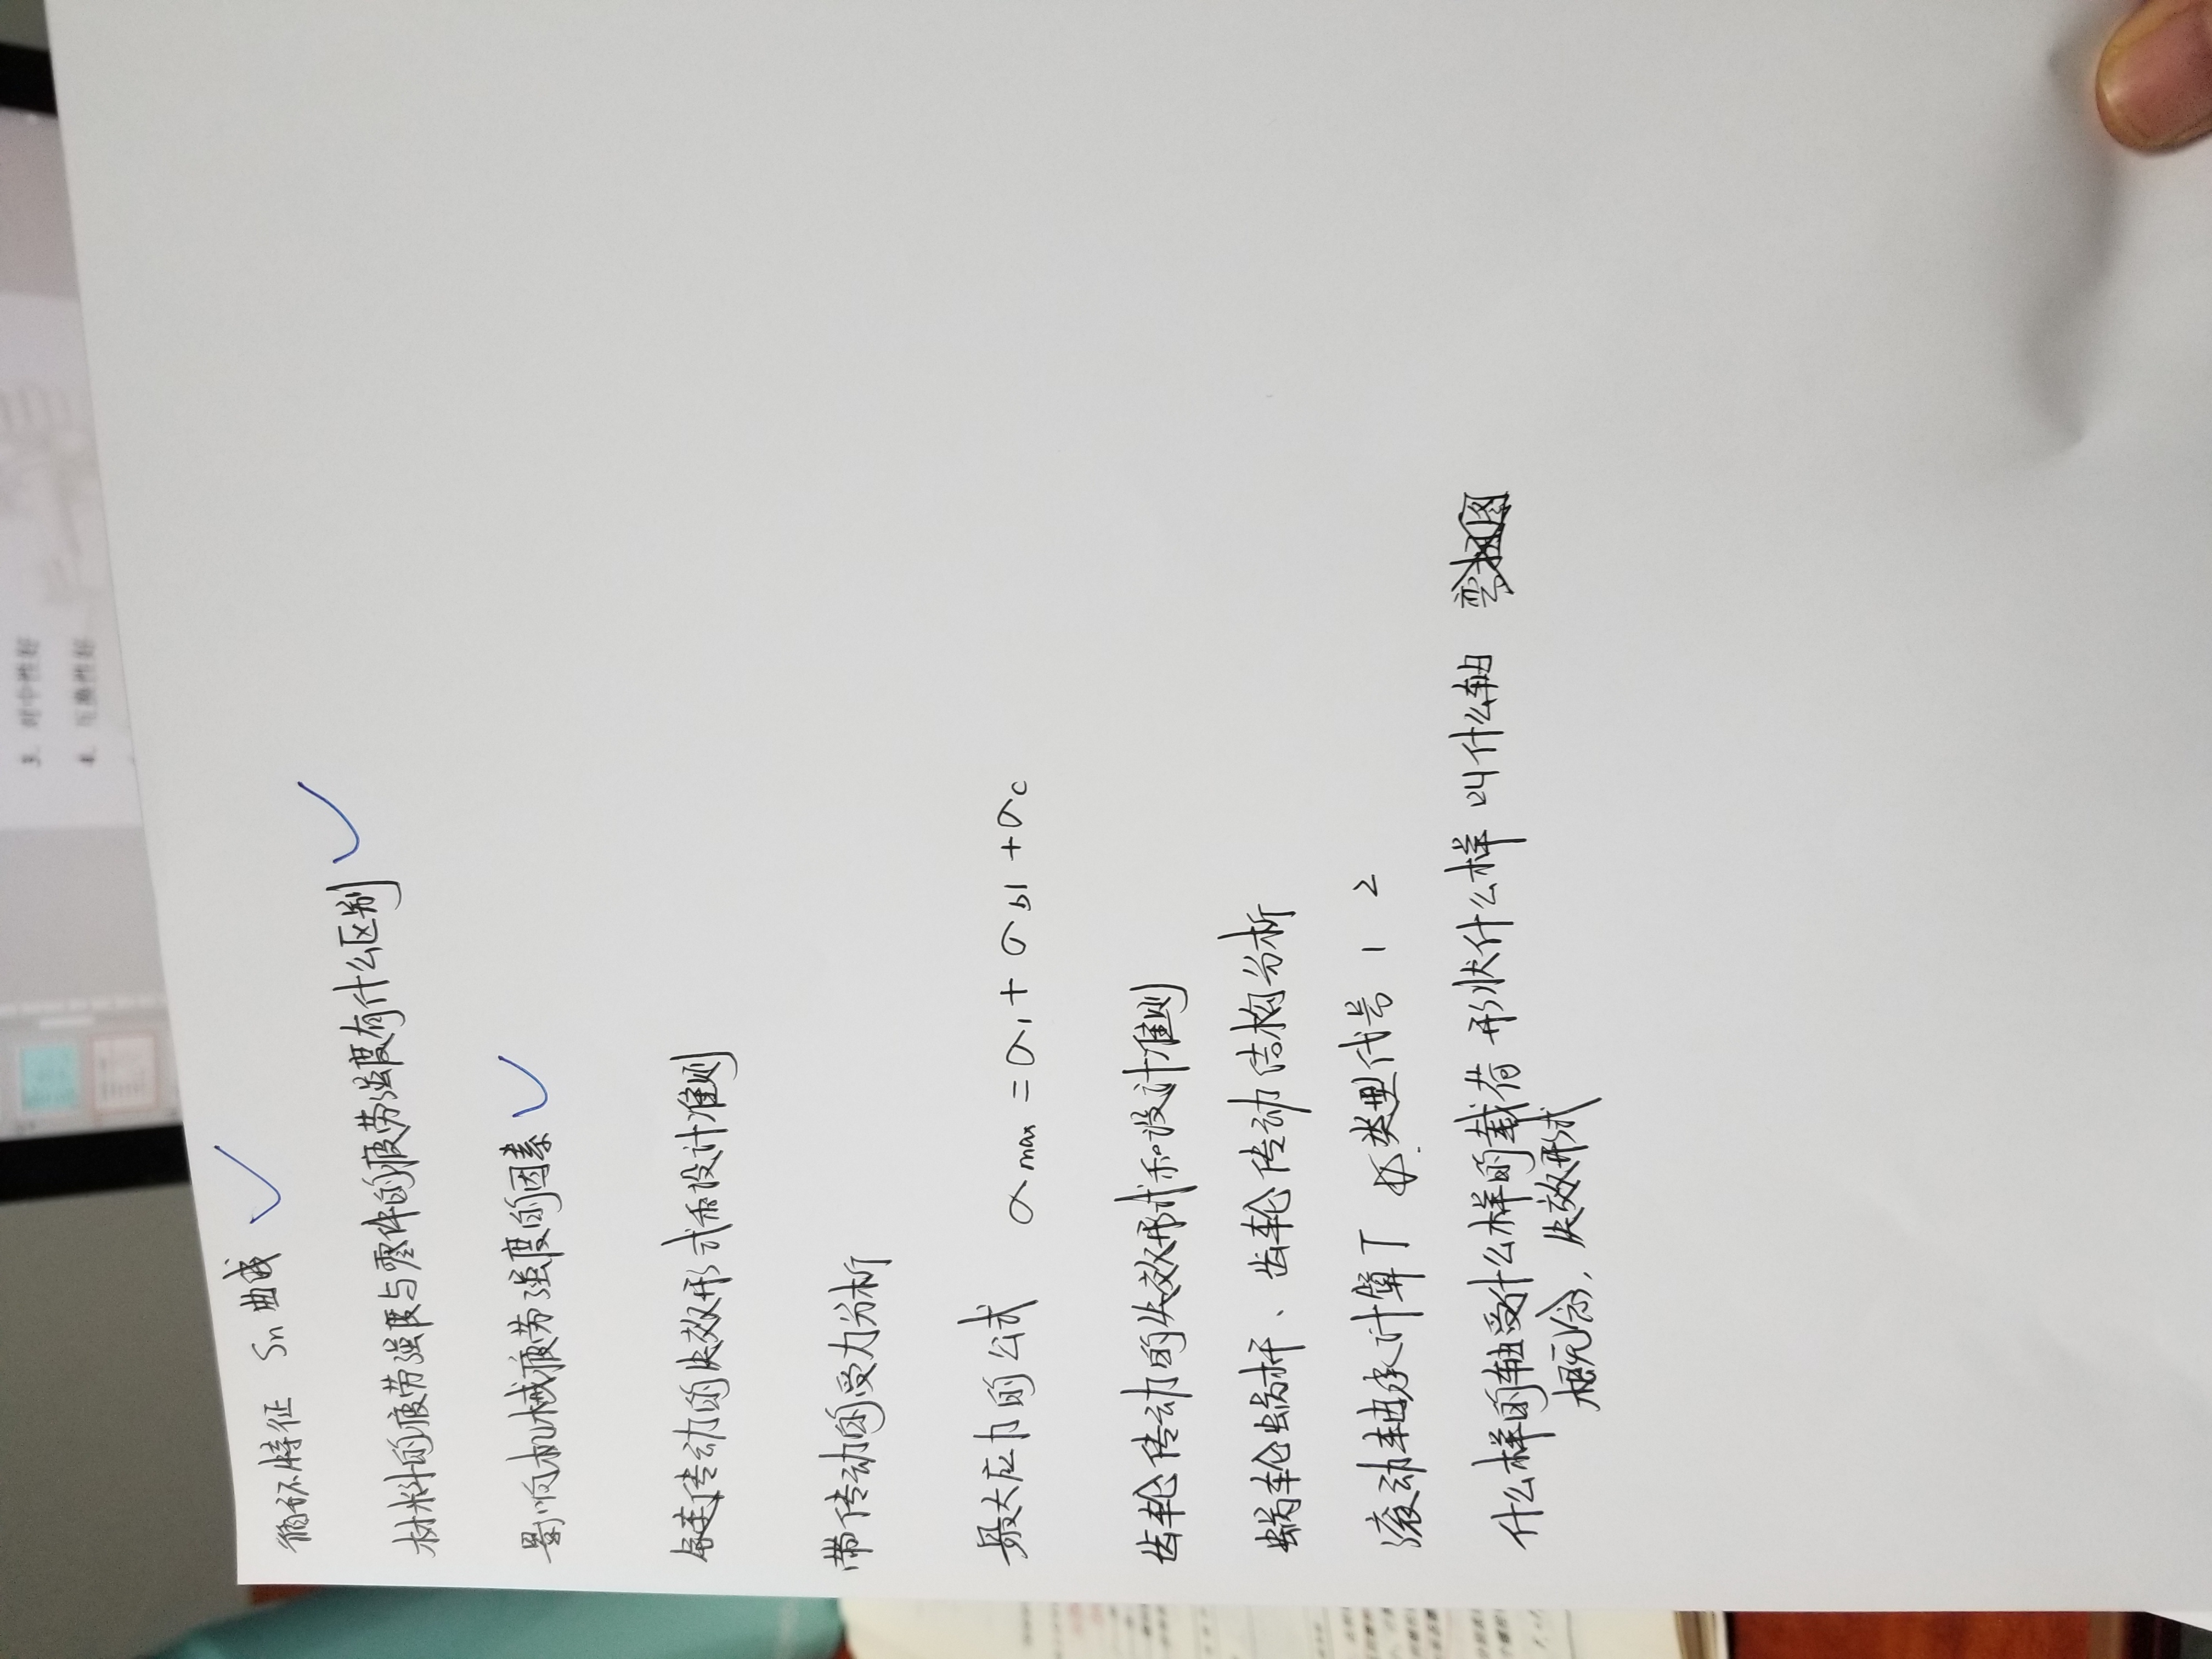 3. 对中性好
4. 互换性好
循环特征 Sn曲线
材料的疲劳强度与零件的疲劳强度有什么区别
影响机械疲劳强度的因素
链传动的失效形式和设计准则
带传动的受力分析
最大应力的公式 σmax = σ1 + σb1 + σc
齿轮传动的失效形式和设计准则
蜗轮蜗杆、齿轮传动结构分析
滚动轴承计算T 类型代号 1 2
什么样的轴受什么样的载荷 形状什么样 叫什么轴
概念,失效形式